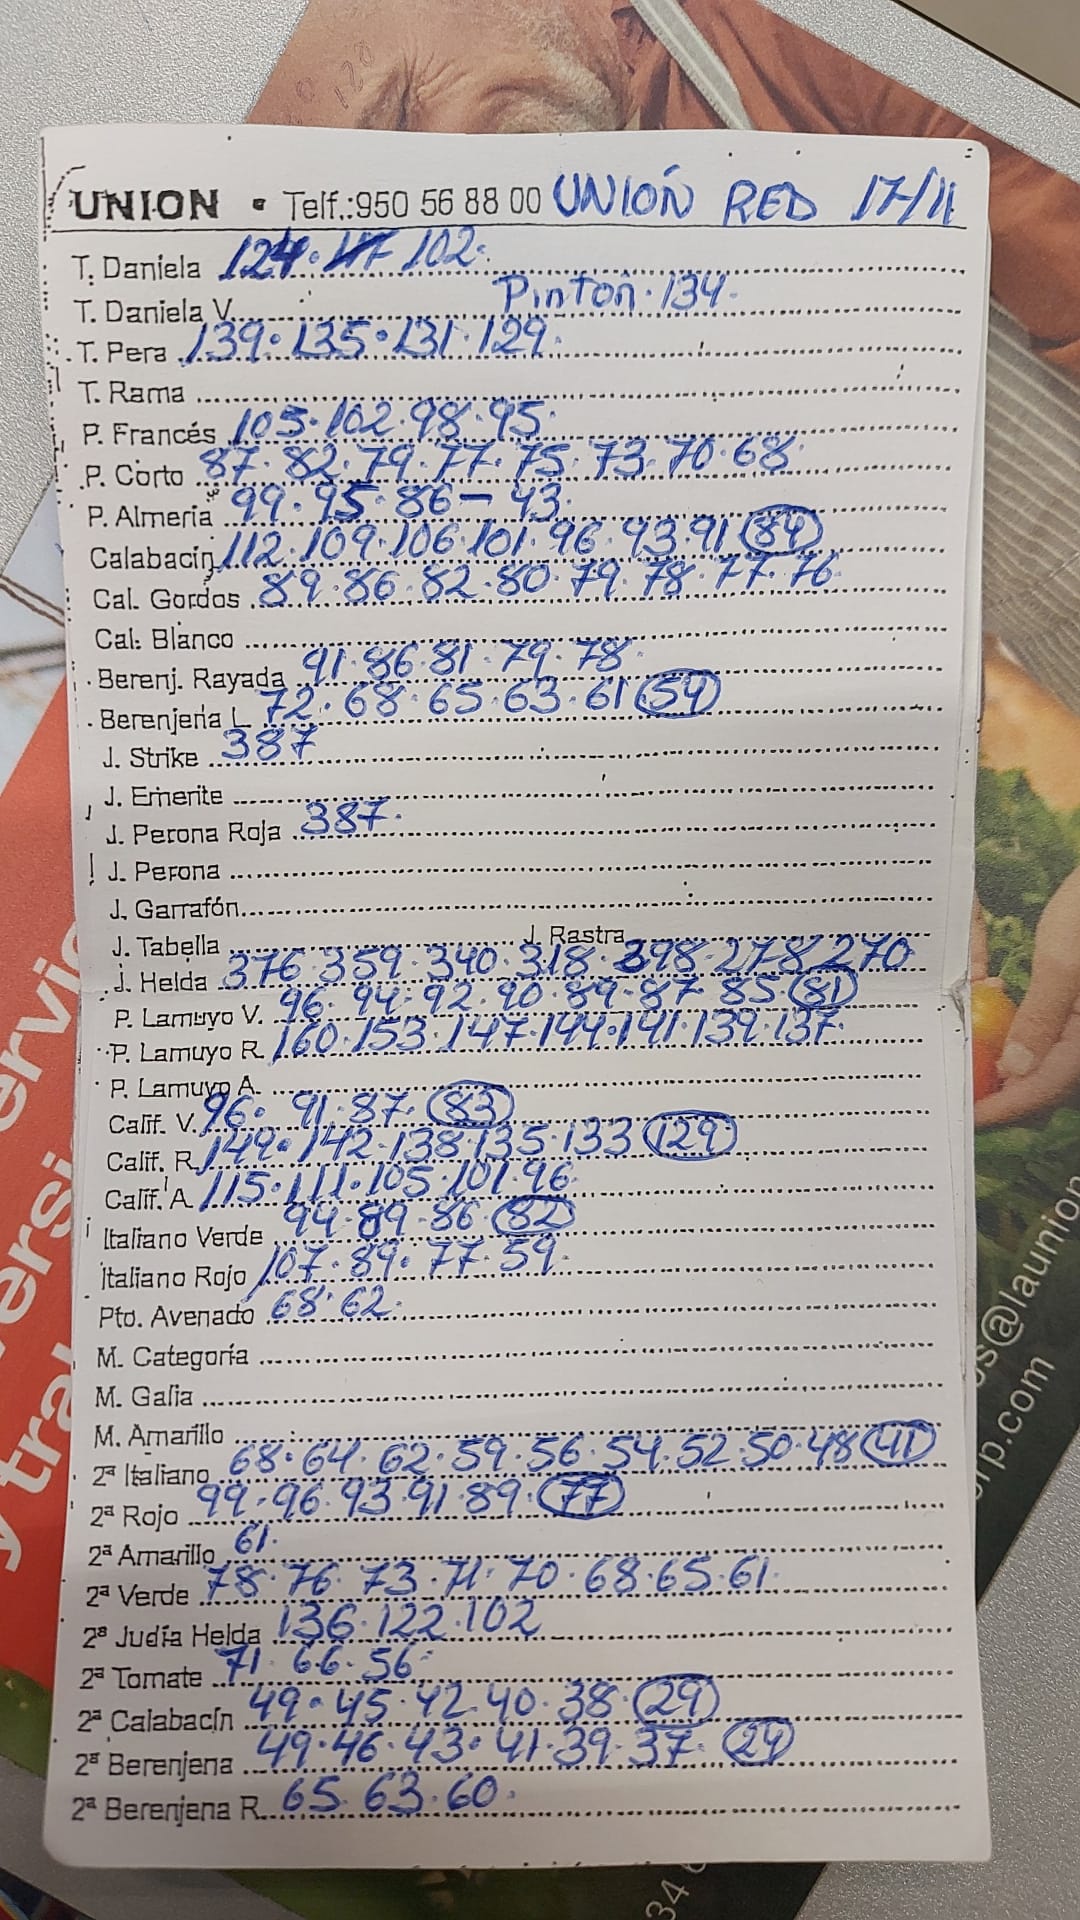 UNION • Telf.:950 56 88 00 UNIÓN RED 17/11
T. Daniela 124. 117 102.
T. Daniela V. Pinton. 134.
T. Pera 139. 135. 131. 129.
T. Rama
P. Francés 105. 102. 98. 95.
P. Corto 87. 82. 79. 77. 75. 73. 70. 68.
P. Almeria 99. 95. 86 — 43.
Calabacin 112. 109. 106. 101. 96. 93. 91 84
Cal. Gordos 89. 86. 82. 80. 79. 78. 77. 76.
Cal. Blanco
Berenj. Rayada 91. 86. 81. 79. 78.
Berenjena L 72. 68. 65. 63. 61 54
J. Strike 387
J. Emerite
J. Perona Roja 387.
J. Perona
J. Garrafón
J. Tabella J. Rastra
J. Helda 376. 359. 340. 318. 298. 278. 270
P. Lamuyo V. 96. 94. 92. 90. 89. 87. 85. 81
P. Lamuyo R. 160. 153. 147. 144. 141. 139. 137.
P. Lamuyo A.
Calif. V. 96. 91. 87. 83
Calif. R. 149. 142. 138. 135. 133 129
Calif. A. 115. 111. 105. 101. 96.
Italiano Verde 94. 89. 86. 82
Italiano Rojo 107. 89. 77. 59.
Pto. Avenado 68. 62.
M. Categoría
M. Galia
M. Amarillo
2ª Italiano 68. 64. 62. 59. 56. 54. 52. 50. 48 41
2ª Rojo 99. 96. 93. 91. 89. 77
2ª Amarillo 61.
2ª Verde 78. 76. 73. 71. 70. 68. 65. 61.
2ª Judía Helda 136. 122. 102
2ª Tomate 71. 66. 56.
2ª Calabacín 49. 45. 42. 40. 38. 29
2ª Berenjena 49. 46. 43. 41. 39. 37. 24
2ª Berenjena R. 65. 63. 60.
120
ervic
ersi
y tra
s@launion
rp.com
34 6